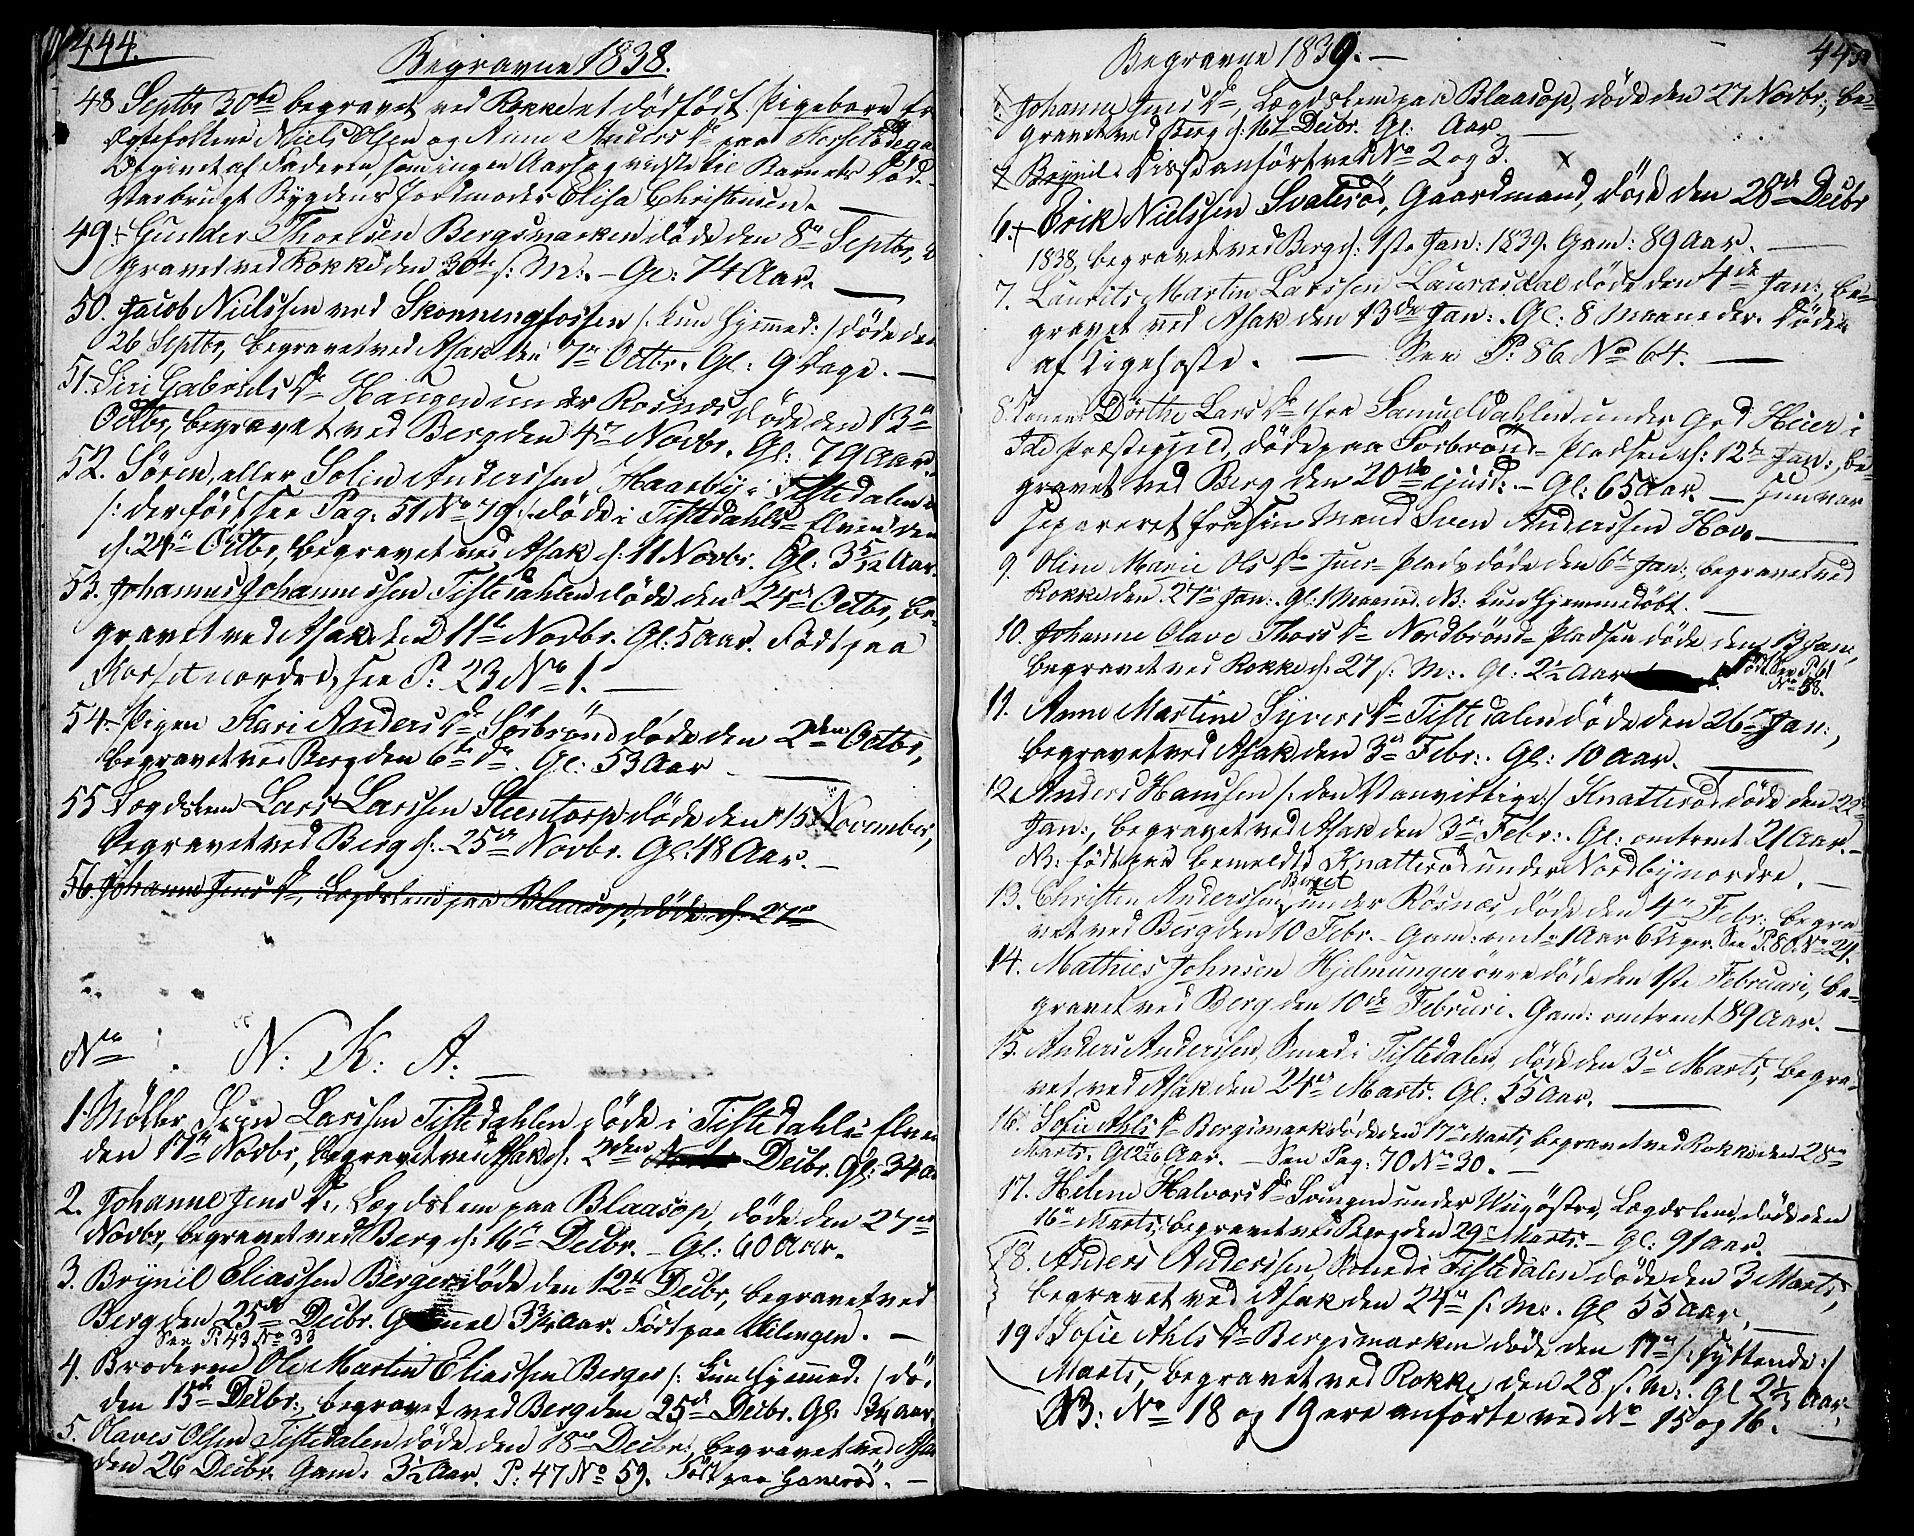 444.
Begravne 1838.
48 Septbr 30te begravet ved Rokke et dødfødt Pigebarn fr
Egtefolkene Niels Olsen og Anne Anders Dr paa
Opgivet af Faderen, som ingen Aarsag vidste til Barnets Død.
Var brugt Bygdens Jordmoder Elisa Christensen.
49 + Gunder Thoresen Bergsmarken døde den 8de Septbr, be
gravet ved Rokke den 30te s: M:. Gl: 74 Aar.
50. Jacob Nielssen ved Skonningfossen /: kun Hjemmed: / døde den
26 Septbr, begravet ved Asak den 7de Octbr. Gl: 9 Dage.
51. Siri Gabriels Dr Haugen under Rosnæs døde den 13de
Octbr, begravet ved Berg den 4de Novbr. Gl: 79 Aar.
52. Søren, eller Solin Anderssen Haarby i Tistedalen
/: der født see Pag: 51 No 79 :/ døde i Tistedahls Elven den
d: 24de Octbr, begravet ved Asak d: 11 Novbr. Gl: 3 5/12 Aar.
53. Johannes Johannessen Tistedahlen døde den 24de Octbr, be-
gravet ved Asak den 11te Novbr. Gl: 5 Aar. Født paa
Korset nordre, see P: 23 No 1.
54. Pigen Kari Anders Dr Sørbrønd døde den 2den Octbr,
begravet ved Berg den 6te Dr. Gl: 53 Aar
55 Lægdslem Lars Larssen Steentorp døde den 15 November,
begravet ved Berg d: 25de Novbr. Gl: 18 Aar.
56. Johanne Jens Dr, Lægdslem paa Blaasop, døde d: 27de
No N: K: A:
1. Møller Lars Larssen Tistedahlen døde i Tistedahls Elven
den 17de Novbr, begravet ved Asak d: 2den Decbr. Gl: 34 Aa
2. Johanne Jens Dr, Lægdslem paa Blaasop, døde den 27de
Novbr, begravet ved Berg d: 16de Decbr. Gl: 60 Aar.
3. Brynil Eliassen Berger døde den 12te Decbr, begravet ved
Berg den 25de Decbr. Gammel 3 3/4 Aar. Født paa
See P: 43 No 33
4. Broderen Ole Martin Eliassen Berger /: kun Hjemmed. :/ dø:
den 15de Decbr, begravet ved Berg den 25de Decbr. Gl: 3/4 Aar
5. Olaves Olsen Tistedalen døde den 18de Decbr, begravet ved Asak
den 26 Decbr. Gam: 3 1/2 Aar. P: 47 No 59. Født paa
Begravne 1839.
445
Johanne Jens Dr, Lægdslem paa Blaasop, døde den 27 Novbr, be-
gravet ved Berg d: 16 Decbr. Gl: Aar
Brynil anført ved No 2 og 3. x
6. + Erik Nielssen Svalerød, Gaardmand, døde den 28de Decbr
1838, begravet ved Berg d: 1ste Jan: 1839. Gam: 89 Aar.
7. Laurits Martin Larssen Laurasdal døde den 4de Jan: be-
gravet ved Asak den 13de Jan:. Gl: 8 Maaneder. Døde
af Kigehoste. See P: 86 No 64.
8. Konen Dorthe Lars Dr fra Samueldahlen under Grd Heier i
Id Præstegjeld, døde paa Sørbrønd-Pladsen d: 12te Jan:, be-
gravet ved Berg den 20de ejusd:. Gl: 65 Aar. Hun var
sepereret fra sin Mand Sven Anderssen Hov.
9. Oline Marie Ols Dr Plads døde den 6te Jan:, begravet ved
Rokke den 27de Jan:. Gl: 1 Maaned. NB: kun Hjemmedøbt.
10. Johanne Olave Thors Dr Nordbrønd-Pladsen døde den 13 Jan:,
begravet ved Rokke d: 27 s: M:. Gl: 2 1/2 Aar Født See P. 61
No 58.
11. Anne Martine Syvers Dr Tistedalen døde den 26de Jan:,
begravet ved Asak den 3de Febr:. Gl: 10 Aar.
12. Anders Hanssen /: den Vanvittige :/ Knatterød døde den 22de
Jan:, begravet ved Asak den 3de Febr:. Gl: omtrent 21 Aar.
NB: født paa bemeldte Knatterød under Nordby nordre.
13. Christen Anderssen Berget under Rosnæs, døde den 4de Febr:, begra
vet ved Berg den 10 Febr. Gam: omtr 1 Aar 6 Uger. See P: 80 No 24.
14. Mathies Johnsen Hjelmungen øvre døde den 1ste Februari, be-
gravet ved Berg den 10de Februari. Gam: omtrent 89 Aar.
15. Anders Anderssen, Smed i Tistedalen, døde den 3de Marts, begra-
vet ved Asak den 24de Marts. Gl: 55 Aar.
16. Sofie Ahls Dr Bergsmark døde den 17de Marts, begravet ved Rokke den 28de
Marts. Gl: Aar. See Pag: 70 No 30.
17. Helene Halvors Dr Svingen under østre, Lægdslem, døde den
16de Marts, begravet ved Berg den 29de Marts. Gl: 91 Aar.
18. Anders Anderssen Smed i Tistedalen døde den 3 Marts,
begravet ved Asak den 24de s: M:. Gl 55 Aar.
19 Sofie Ahls Dr Bergsmarken døde den 17de /: syttende :/
Marts, begravet ved Rokke den 28 s: M:. Gl 2 1/2 Aar.
NB: No 18 og 19 ere anførte ved No 15 og 16.